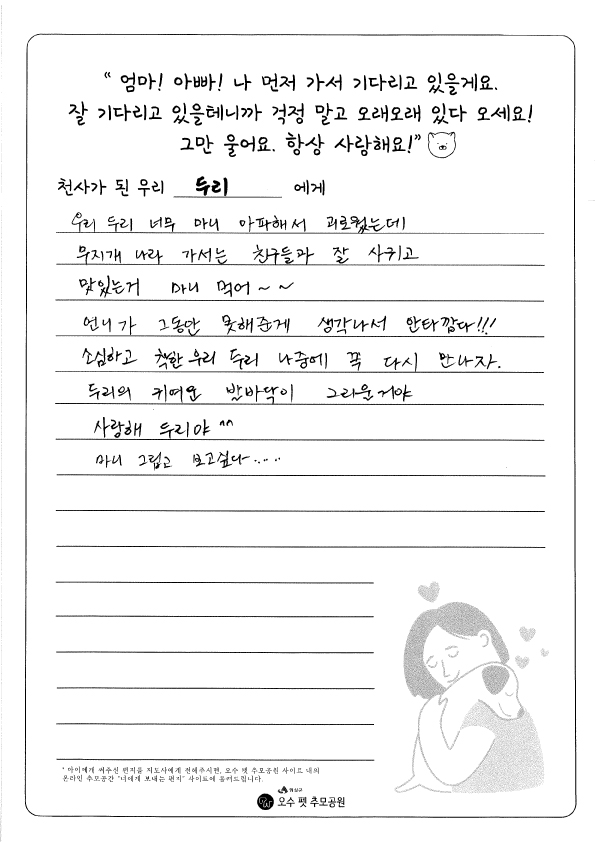 “ 엄마! 아빠! 나 먼저 가서 기다리고 있을게요.
잘 기다리고 있을테니까 걱정 말고 오래오래 있다 오세요!
그만 울어요. 항상 사랑해요!”
천사가 된 우리 두리 에게
우리 두리 너무 마니 아파해서 괴로웠는데
무지개 나라 가서는 친구들과 잘 사귀고
맜있는거 마니 먹어~~
언니가 그동안 못해준게 생각나서 안타깝다!!!
소심하고 착한 우리 두리 나중에 꼭 다시 만나자.
두리의 귀여운 발바닥이 그리운거야
사랑해 두리야 ^^
마니 그립고 보고싶다.....
* 아이에게 써주신 편지를 지도사에게 전해주시면, 오수 펫 추모공원 사이트 내의
온라인 추모공간 "너에게 보내는 편지" 사이트에 올려드립니다.
임실군
오수 펫 추모공원